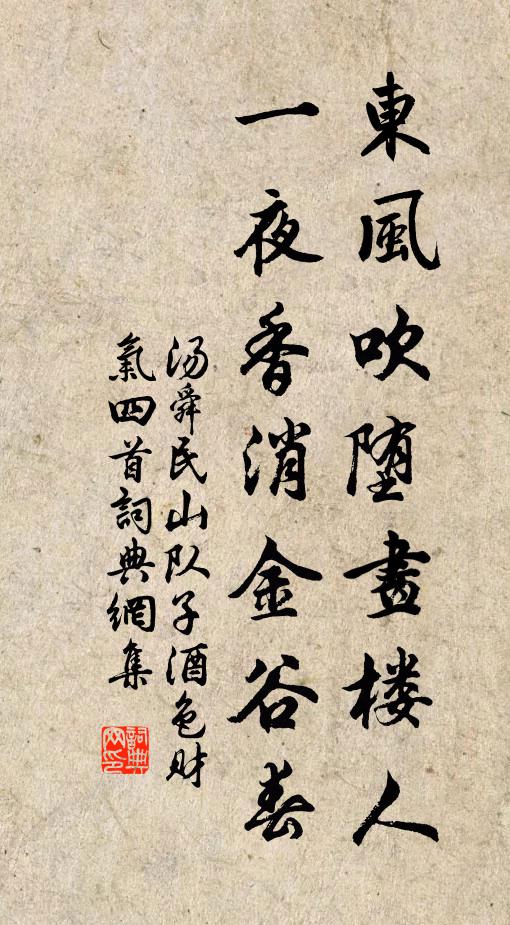 東風吹堕畫楼人
一夜香消金谷春
汤舜民山队子酒色财
氣四首詞典網集
詞典網印